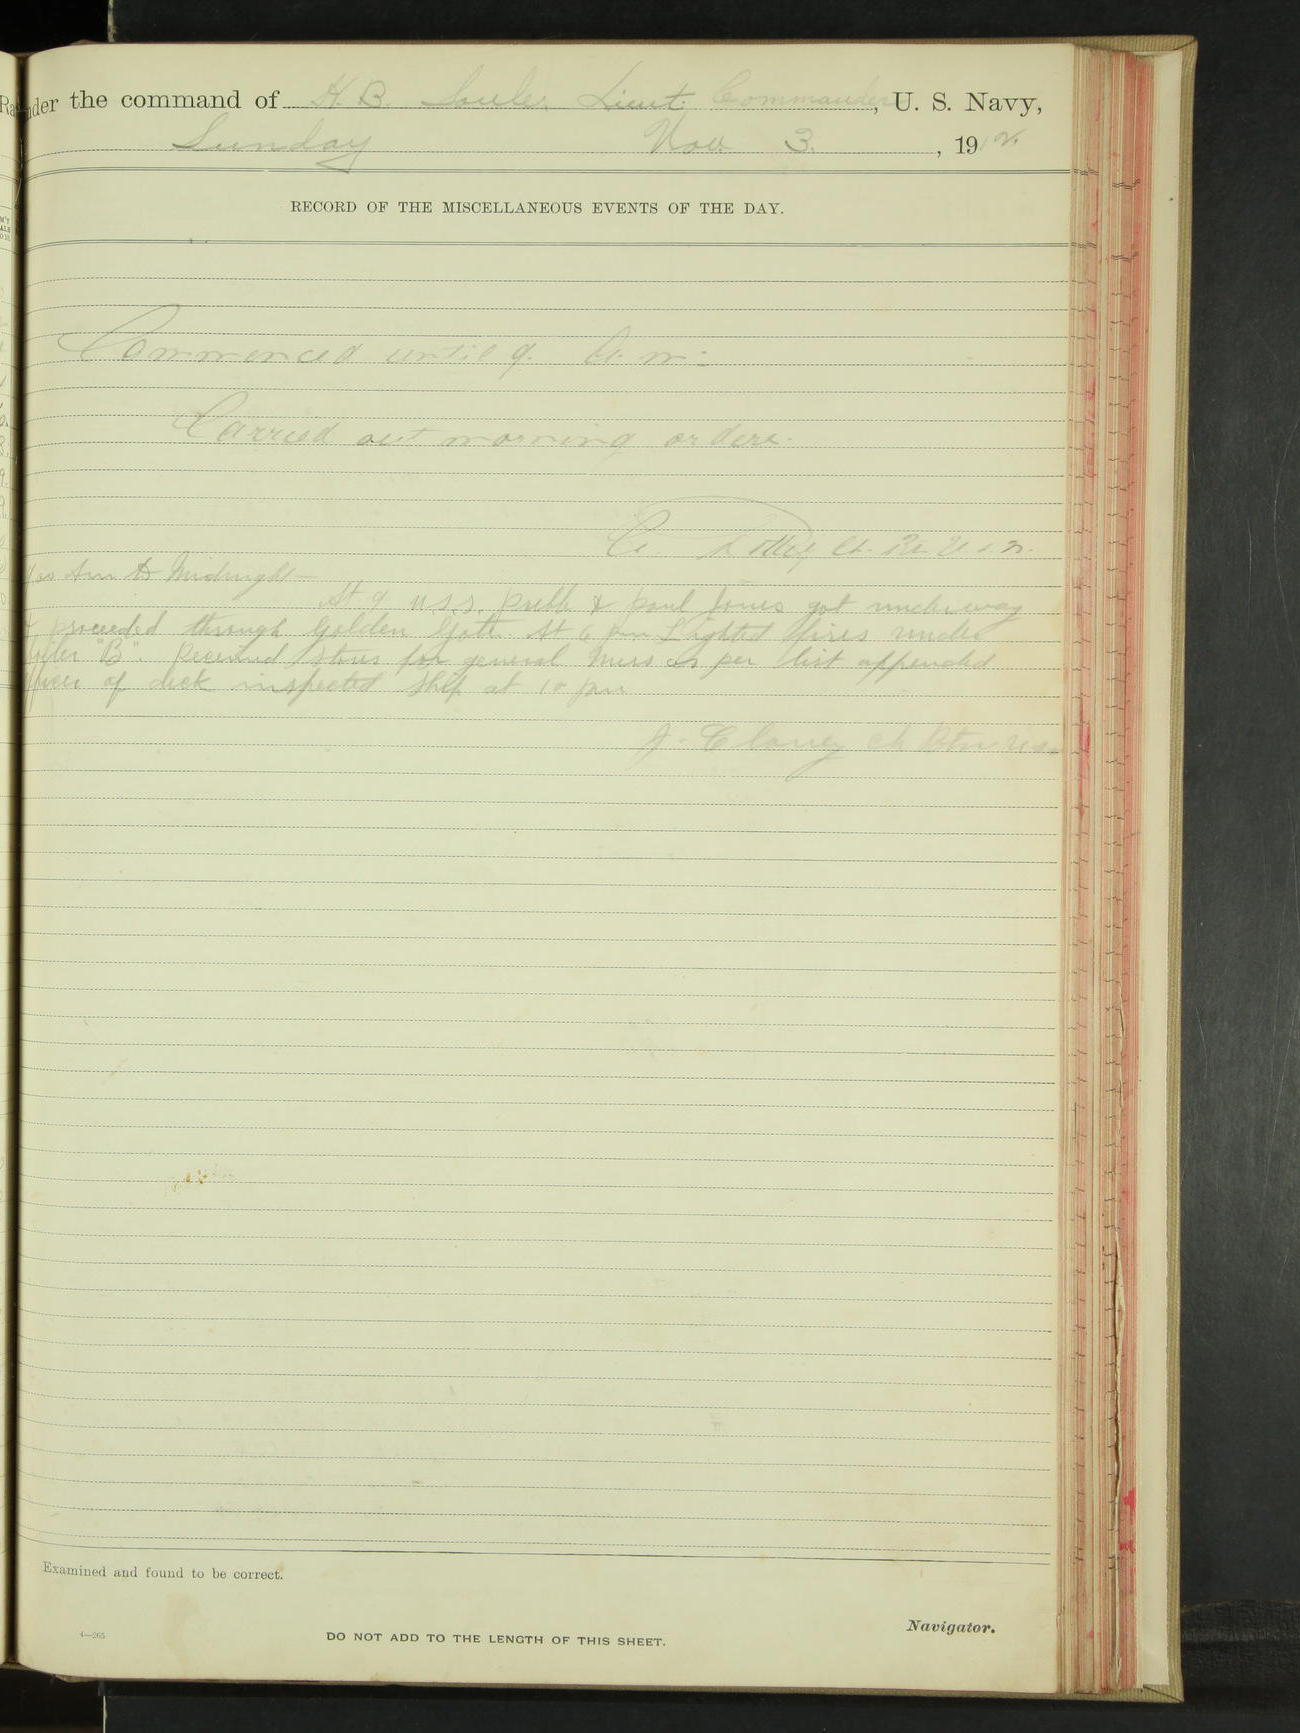 under the command of H. B. Soule, Lieut. Commander, U. S. Navy,
Sunday Nov. 3. , 1912
RECORD OF THE MISCELLANEOUS EVENTS OF THE DAY.
Commenced until 9. A. m:
Carried out morning orders.
to Midnight—
At 9 U.S.S. Preble & Paul Jones got underway
proceeded through Golden Gate. At 6 pm Lighted fires under
"B". Received Stores for general Mess as per list appended
of deck inspected ship at 10 pm
J. Clancy Ch Btn USN
Examined and found to be correct.
Navigator.
4—265
DO NOT ADD TO THE LENGTH OF THIS SHEET.